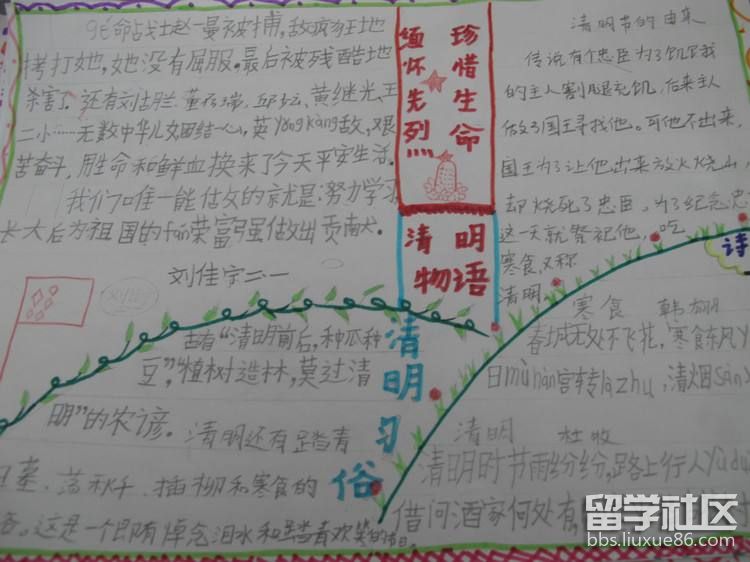 革命战士赵一曼被捕,敌疯狂地
拷打她,她没有屈服。最后被残酷地
杀害了。还有刘胡兰、董存瑞、邱少云、黄继光、王
二小……无数中华儿女团结一心,英yǒng kàng敌,艰
苦奋斗,用生命和鲜血换来了今天平安生活。
我们唯一能做的就是:努力学习
长大后为祖国的fán荣富强做出贡献。
刘佳宇二一
缅怀先烈
珍惜生命
清明
物语
清明节的由来
传说有个忠臣为了饥饿
的主人割腿充饥,后来主人
做了国王寻找他。可他不出来,
国王为了让他出来放火烧山,
却烧死了忠臣,为了纪念忠
这一天就祭祀他,吃
寒食,又称
清明。
诗
古有“清明前后,种瓜种
豆”,“植树造林,莫过清
明”的农谚。清明还有踏青
墓、荡秋千、插柳和寒食的
俗。这是一个即有悼念泪水和踏青欢笑的节日。
清明习俗
寒食 韩翃
春城无处不飞花,寒食东风
日mù hàn宫转là zhu,清烟sàn
清明 杜牧
清明时节雨纷纷,路上行人yù du
借问酒家何处有
留学社区
bbs.liuxue86.com